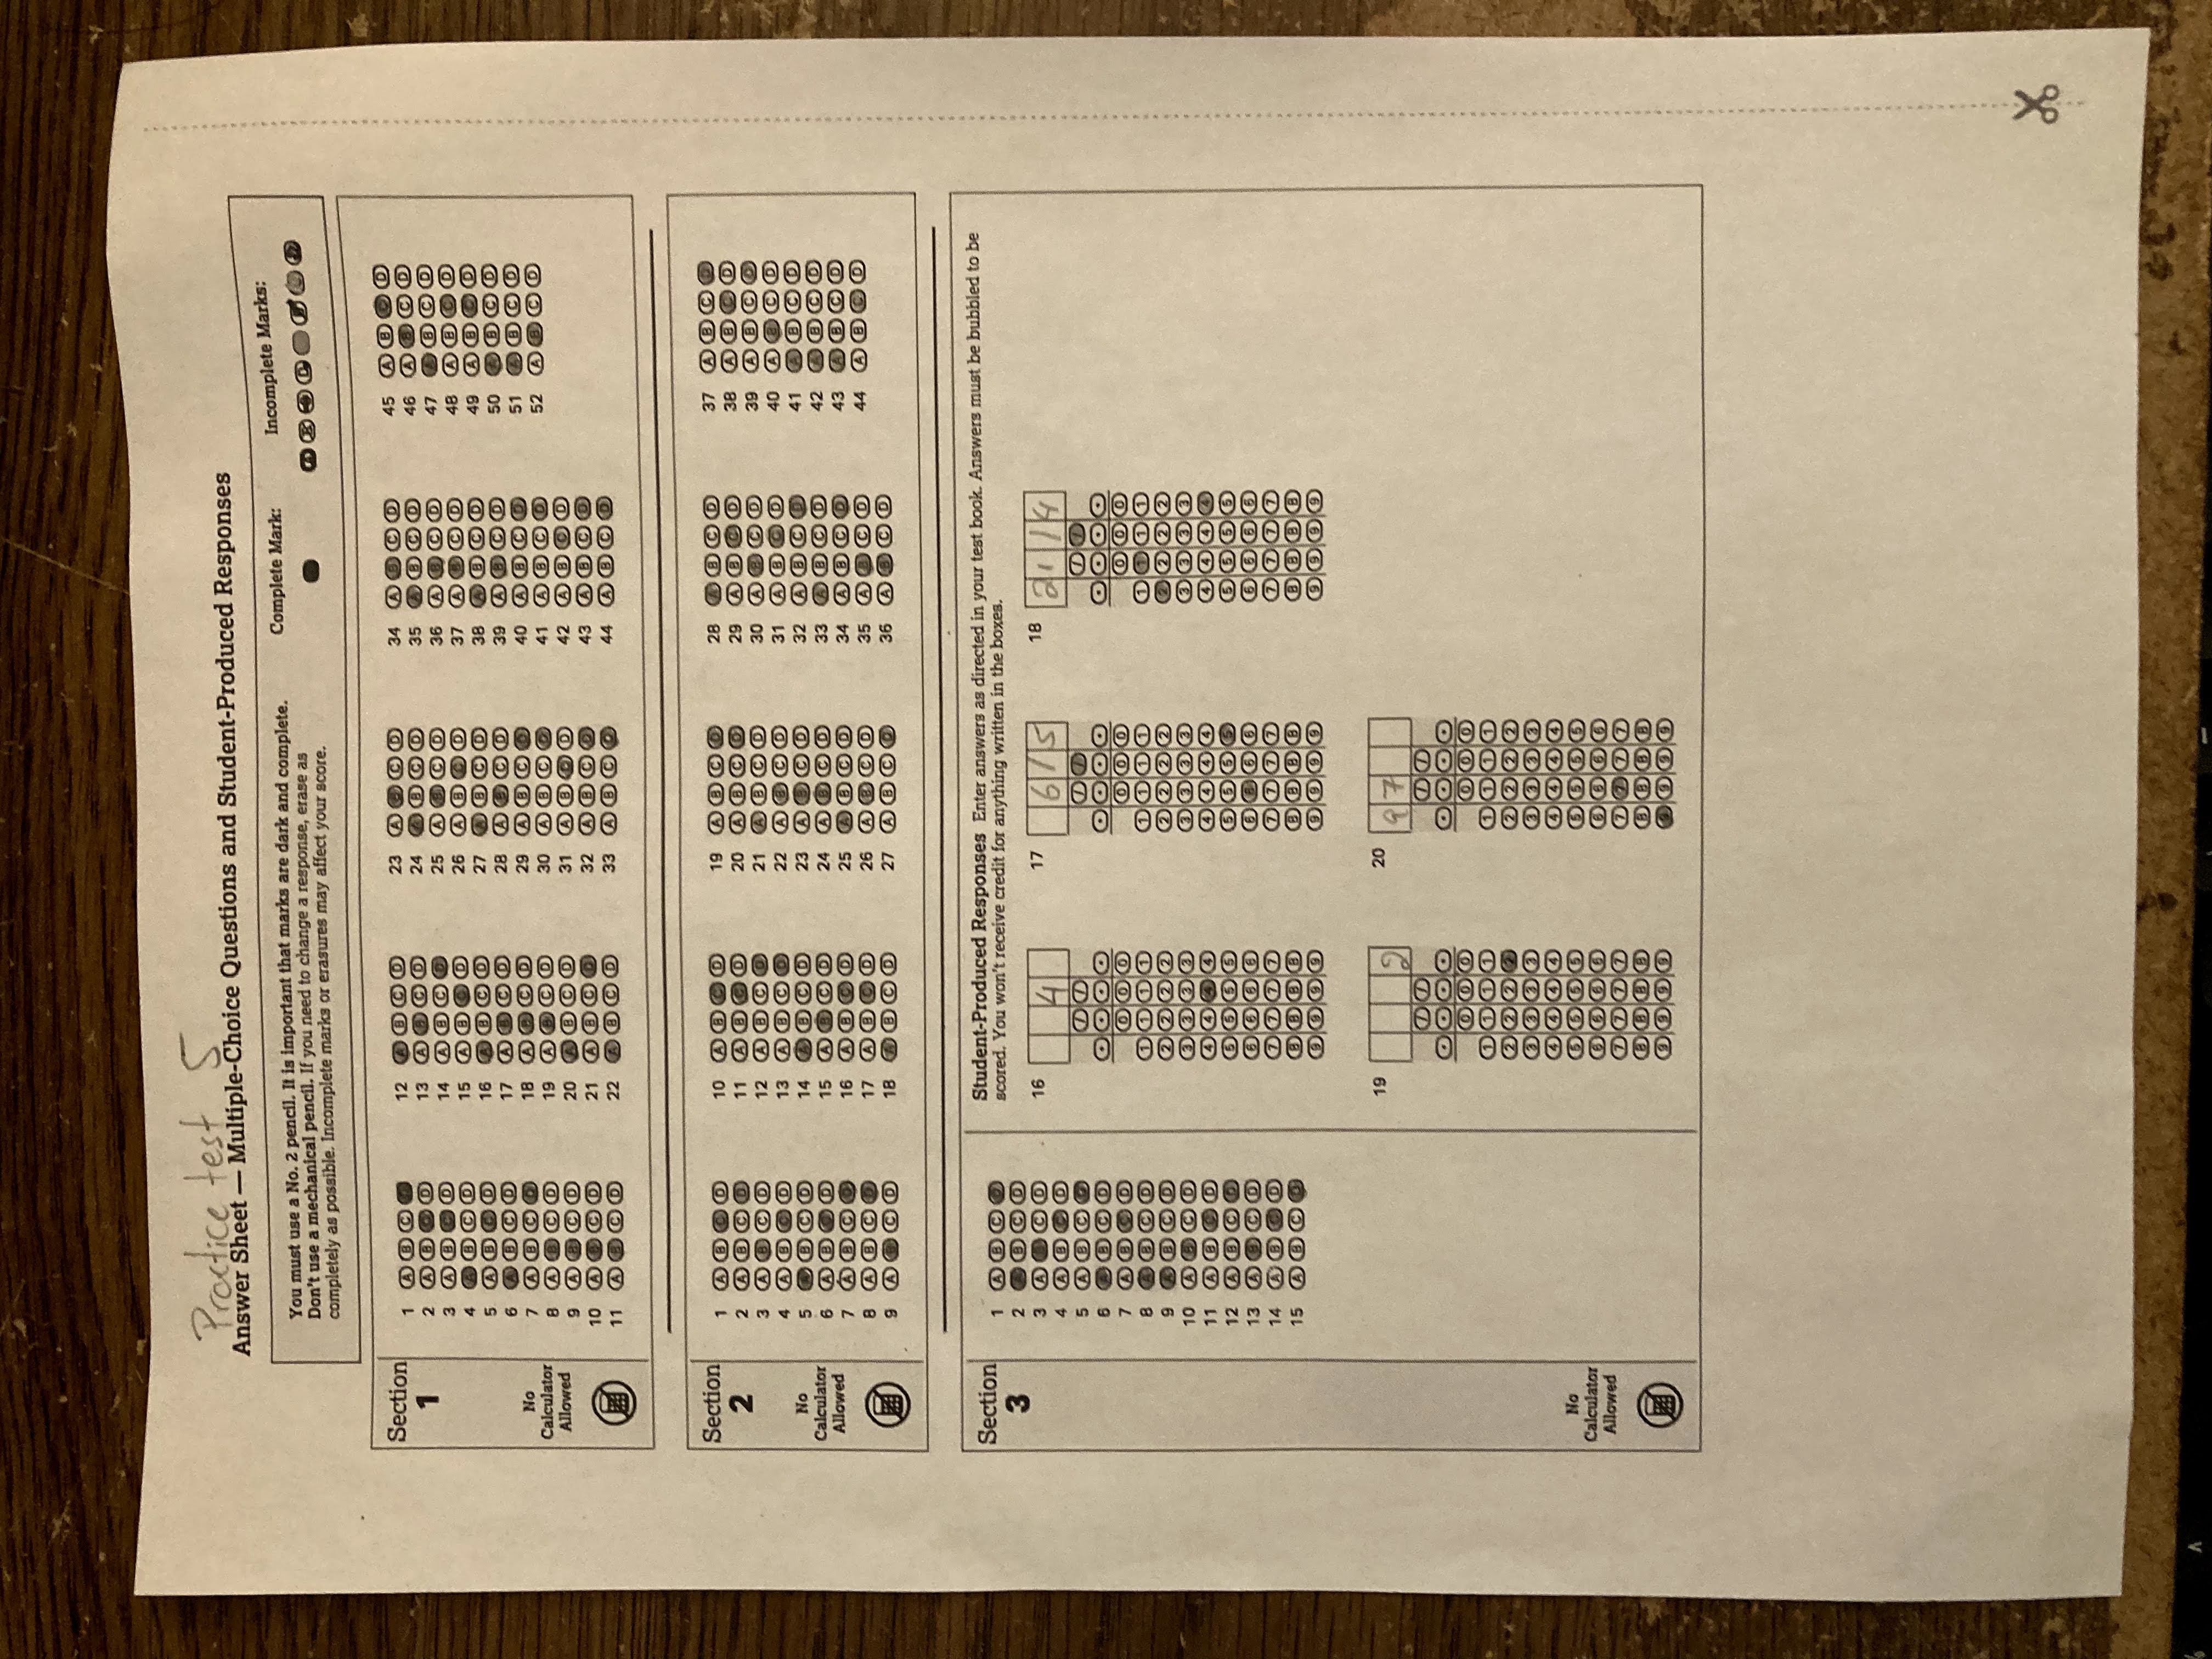 Practice test 5
Answer Sheet — Multiple-Choice Questions and Student-Produced Responses
You must use a No. 2 pencil. It is important that marks are dark and complete.
Don't use a mechanical pencil. If you need to change a response, erase as
completely as possible. Incomplete marks or erasures may affect your score.
Complete Mark:
Incomplete Marks:
Section
1
No
Calculator
Allowed
1 A B C
2 A B C D
3 A B C D
4 A B C D
5 A B C D
6 A B C D
7 A B C D
8 A B C D
9 A B C D
10 A B C D
11 A B C D
12 A B C D
13 A B C D
14 A B C D
15 A B C D
16 A B C D
17 A B C D
18 A B C D
19 A B C D
20 A B C D
21 A B C D
22 A B C D
23 A B C D
24 A B C D
25 A B C D
26 A B C D
27 A B C D
28 A B C D
29 A B C D
30 A B C D
31 A B C D
32 A B C D
33 A B C D
34 A B C D
35 A B C D
36 A B C D
37 A B C D
38 A B C D
39 A B C D
40 A B C D
41 A B C D
42 A B C D
43 A B C D
44 A B C D
45 A B C D
46 A B C D
47 A B C D
48 A B C D
49 A B C D
50 A B C D
51 A B C D
52 A B C D
Section
2
No
Calculator
Allowed
1 A B C D
2 A B C D
3 A B C D
4 A B C D
5 A B C D
6 A B C D
7 A B C D
8 A B C D
9 A B C D
10 A B C D
11 A B C D
12 A B C D
13 A B C D
14 A B C D
15 A B C D
16 A B C D
17 A B C D
18 A B C D
19 A B C D
20 A B C D
21 A B C D
22 A B C D
23 A B C D
24 A B C D
25 A B C D
26 A B C D
27 A B C D
28 A B C D
29 A B C D
30 A B C D
31 A B C D
32 A B C D
33 A B C D
34 A B C D
35 A B C D
36 A B C D
37 A B C D
38 A B C D
39 A B C D
40 A B C D
41 A B C D
42 A B C D
43 A B C D
44 A B C D
Section
3
No
Calculator
Allowed
1 A B C D
2 A B C D
3 A B C D
4 A B C D
5 A B C D
6 A B C D
7 A B C D
8 A B C D
9 A B C D
10 A B C D
11 A B C D
12 A B C D
13 A B C D
14 A B C D
15 A B C D
Student-Produced Responses Enter answers as directed in your test book. Answers must be bubbled to be
scored. You won't receive credit for anything written in the boxes.
16 4
/ /
. . . .
0 0 0
1 1 1 1
2 2 2 2
3 3 3 3
4 4 4 4
5 5 5 5
6 6 6 6
7 7 7 7
8 8 8 8
9 9 9 9
17 6/5
/ /
. . . .
0 0 0
1 1 1 1
2 2 2 2
3 3 3 3
4 4 4 4
5 5 5 5
6 6 6 6
7 7 7 7
8 8 8 8
9 9 9 9
18 21/4
/ /
. . . .
0 0 0
1 1 1 1
2 2 2 2
3 3 3 3
4 4 4 4
5 5 5 5
6 6 6 6
7 7 7 7
8 8 8 8
9 9 9 9
19 2
/ /
. . . .
0 0 0
1 1 1 1
2 2 2 2
3 3 3 3
4 4 4 4
5 5 5 5
6 6 6 6
7 7 7 7
8 8 8 8
9 9 9 9
20 97
/ /
. . . .
0 0 0
1 1 1 1
2 2 2 2
3 3 3 3
4 4 4 4
5 5 5 5
6 6 6 6
7 7 7 7
8 8 8 8
9 9 9